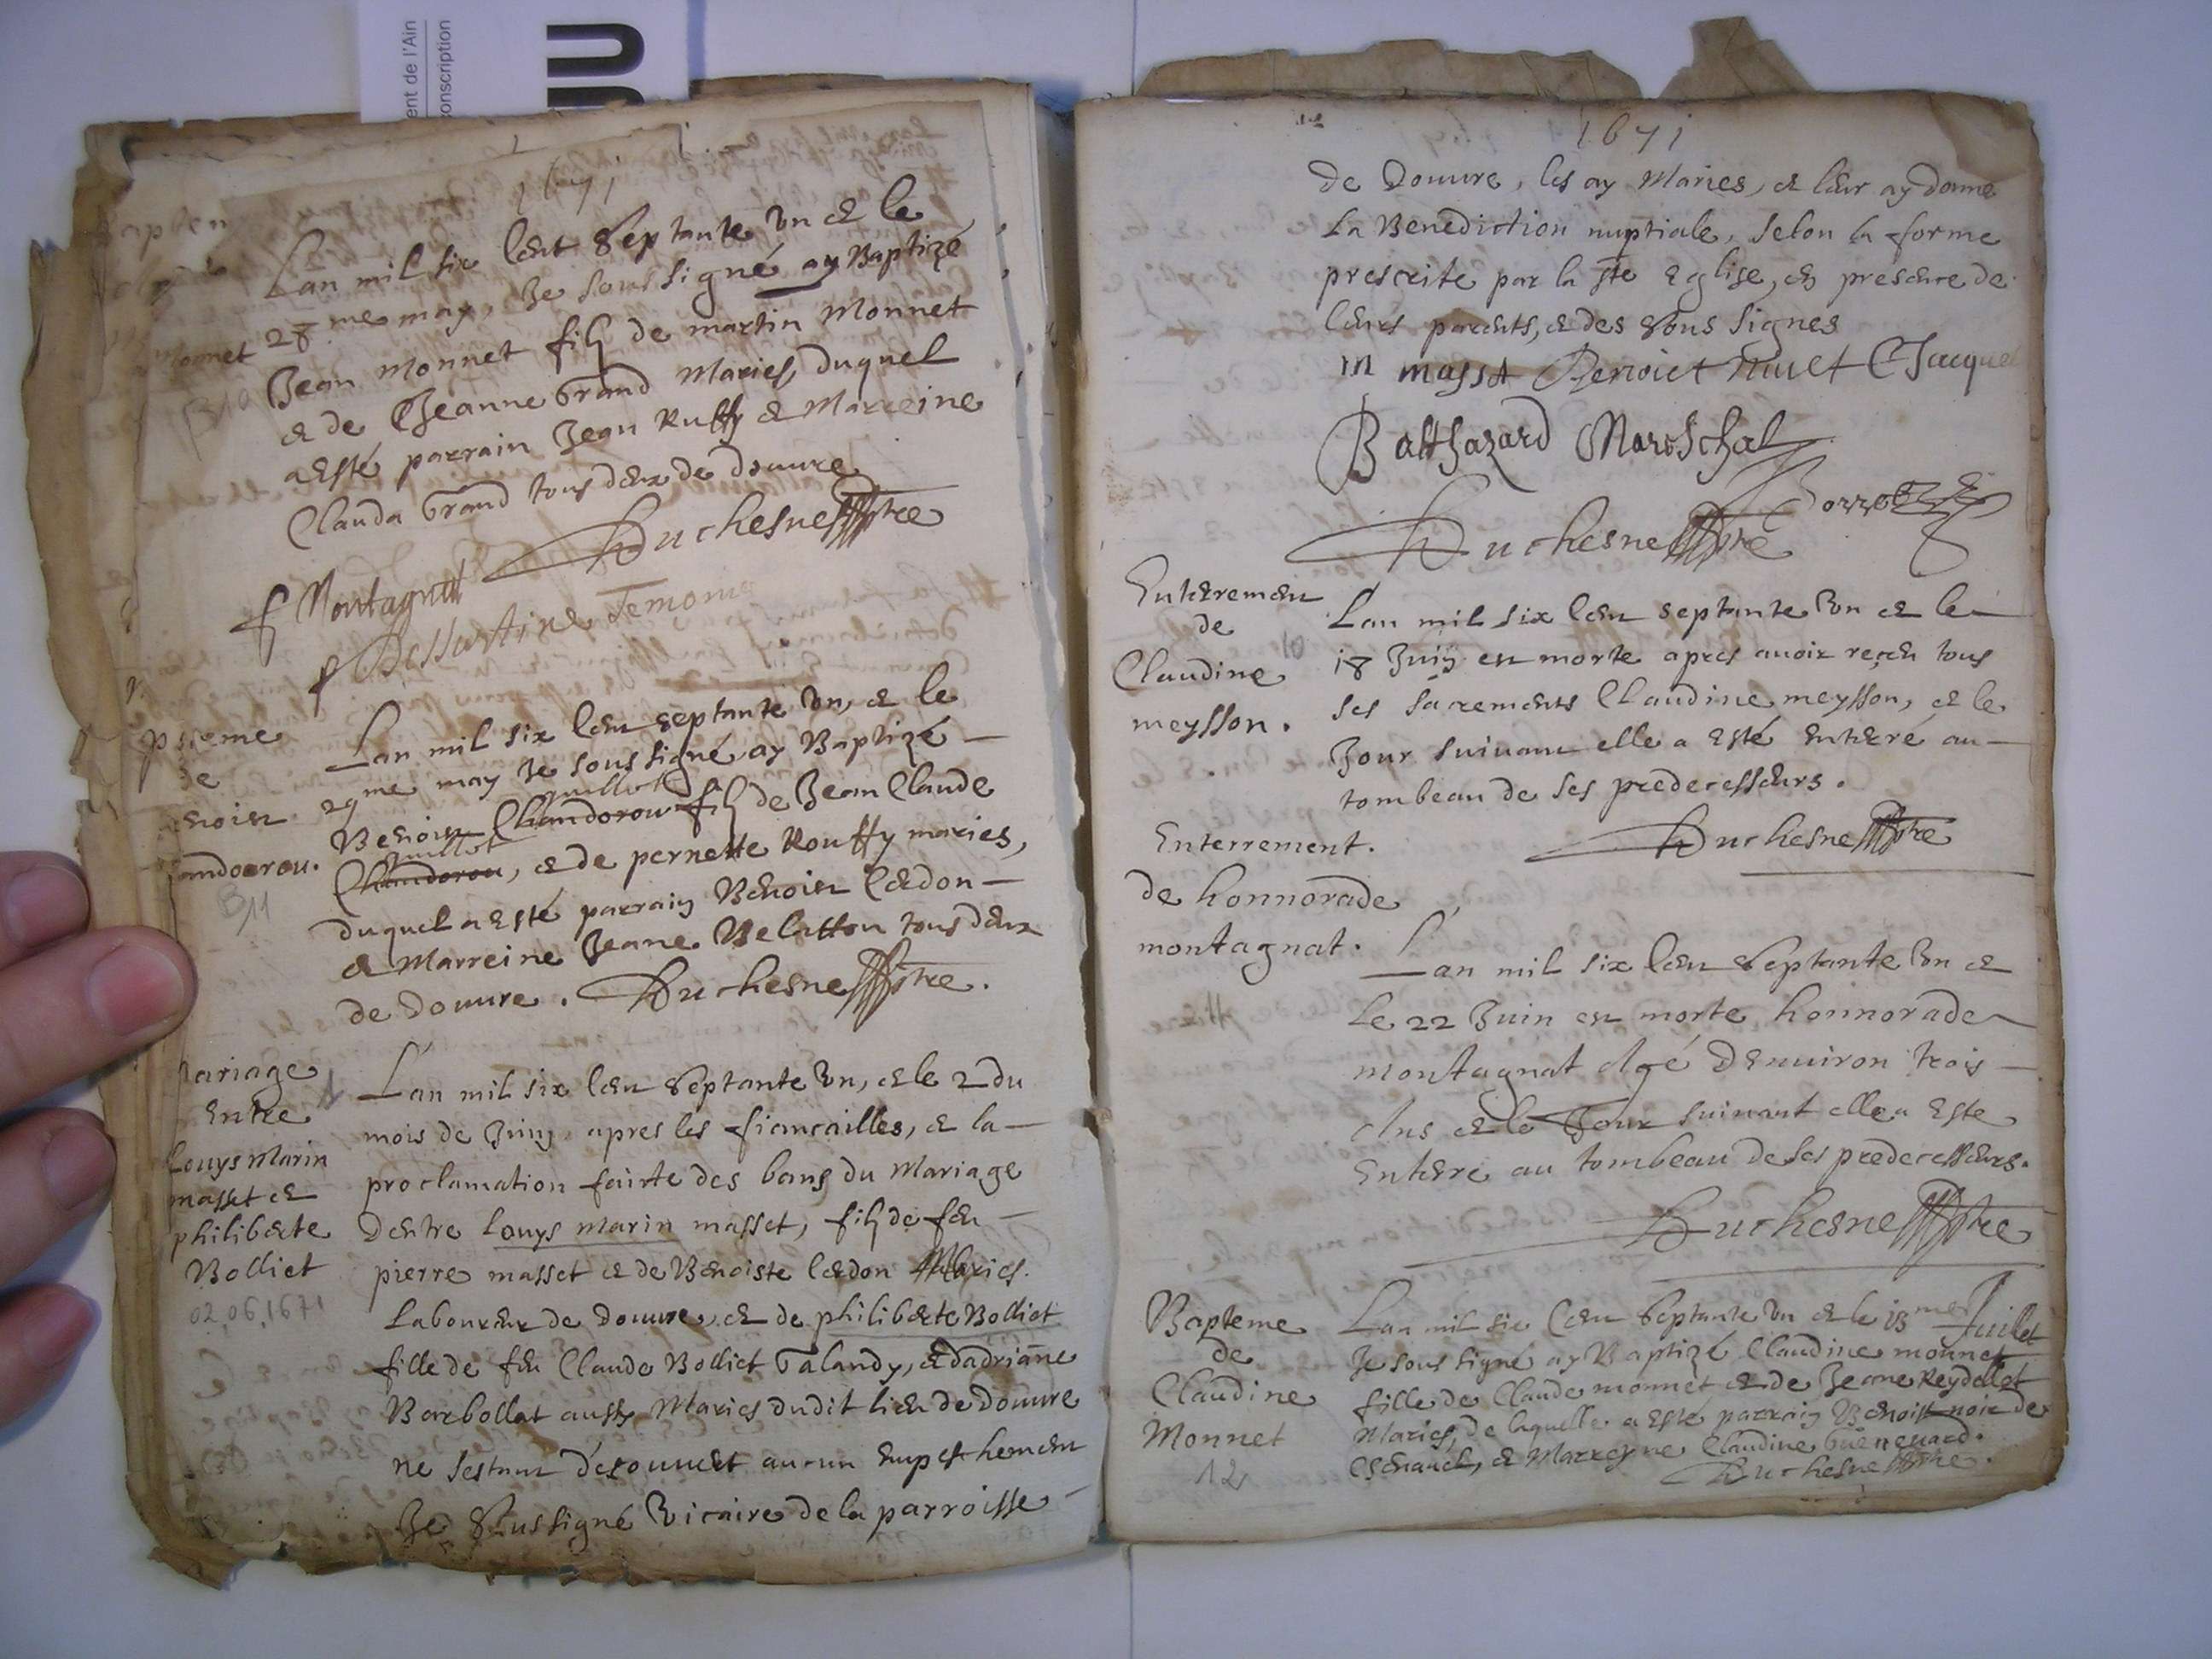 ent de l'Ain
onscription
1671
Lan mil six Cent Septante Un et le
28me may, Je sous signé ay Baptizé
Jean Monnet fils de martin Monnet
et de Jeanne Grand Mariés, duquel
a Esté parrain Jean Ruffy et Marreine
Clauda Grand tous deux de douvre
Duchesne ptre
Monnet
f Montagnat
f Dessartine Temoin
pteme
de
enoist
andorou.
B11
Lan mil six Cens septante Un, et le
29me may Je sous signé ay Baptizé
Benoist Chandorou fils de Jean Claude
Chandorou, et de pernette Rouffy mariés,
duquel a Esté parrain Benoist Cædon
et Marreine Jeane Belatton tous deux
de Douvre. Duchesne ptre.
Mariage
Entre
Louys Marin
masset et
philiberte
Bolliet
02.06.1671
L'an mil six Cens Septante Un, et le 2 du
mois de Juing apres les fiancailles, et la
proclamation fairte des bans du Mariage
dentre Louys Marin masset, fils de feu
pierre masset et de Benoiste Cædon Mariés.
Laboureur de Douvre, et de philiberte Bolliet
fille de feu Claude Bolliet Galandy, et dadrianne
Barbollat aussy Mariés dudit lieu de Douvre
ne sestant descouvert aucun Empeshement
Je Soussigné Vicaire de la parroisse
1671
de Douvre, les ay Maries, et leur ay donné
La Benediction nuptiale, selon la forme
prescrite par la ste Eglise, en presence de
leurs parents, et des sous signes
m masset Benoict Nuet C Jacque
Balthazard Mareschal
Duchesne ptre
Enterement
de
Claudine
meysson.
10
Lan mil six Cens septante Un et le
18 Juin est morte apres avoir reçeu tous
ses sacrements Claudine meysson, et le
Jour suivant elle a Esté Enteré au
tombeau de ses predecesseurs.
Duchesne ptre
Enterrement.
de honnorade
montagnat.
L'an mil six Cens Septante Un et
Le 22 Juin est morte honnorade
montagnat Agé Denviron trois
Ans et le Jour suivant elle a Esté
Enteré au tombeau de ses predecesseurs.
Duchesne ptre
Bapteme
de
Claudine
Monnet
12
Lan mil six Cens Septante Un et le 13me Juillet
Je sous signé ay Baptizé Claudine monnet
fille de Claude monnet et de Jeane Reydellet
Mariés, de laquelle a Esté parrain Benoist noir de
et Marreyne Claudine
Duchesne ptre.